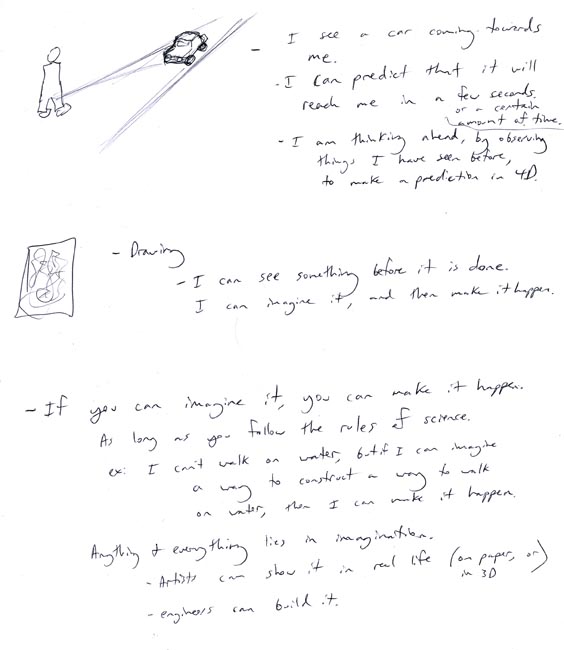 - I see a car coming towards
me.
- I can predict that it will
reach me in a few seconds.
or a certain
amount of time.
- I am thinking ahead, by observing
things I have seen before,
to make a prediction in 4D.
- Drawing
- I can see something before it is done.
I can imagine it, and then make it happen.
- If you can imagine it, you can make it happen.
As long as you follow the rules of science.
ex: I can't walk on water, but if I can imagine
a way to construct a way to walk
on water, then I can make it happen.
Anything & everything lies in imagination.
- Artists can show it in real life (on paper, or)
in 3D
- engineers can build it.